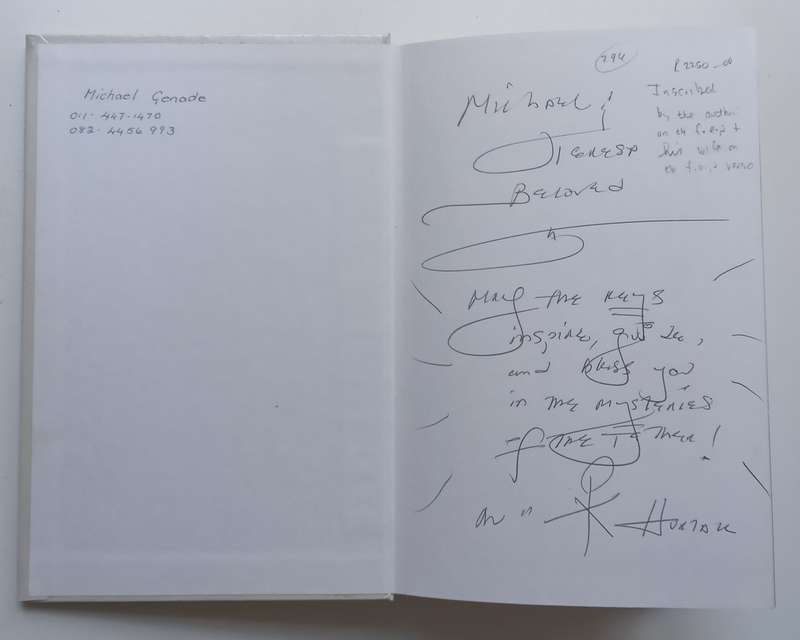 Michael Genade
011-447-1470
082-4456 993
294
R 2250-00
Inscribed
by the author
on the f.e.p +
his wife on
the f.e.p verso
Michael!
Beloved
May the Keys
inspire, guide,
and Bless you
in the mysteries
of the Father!
Hurtak